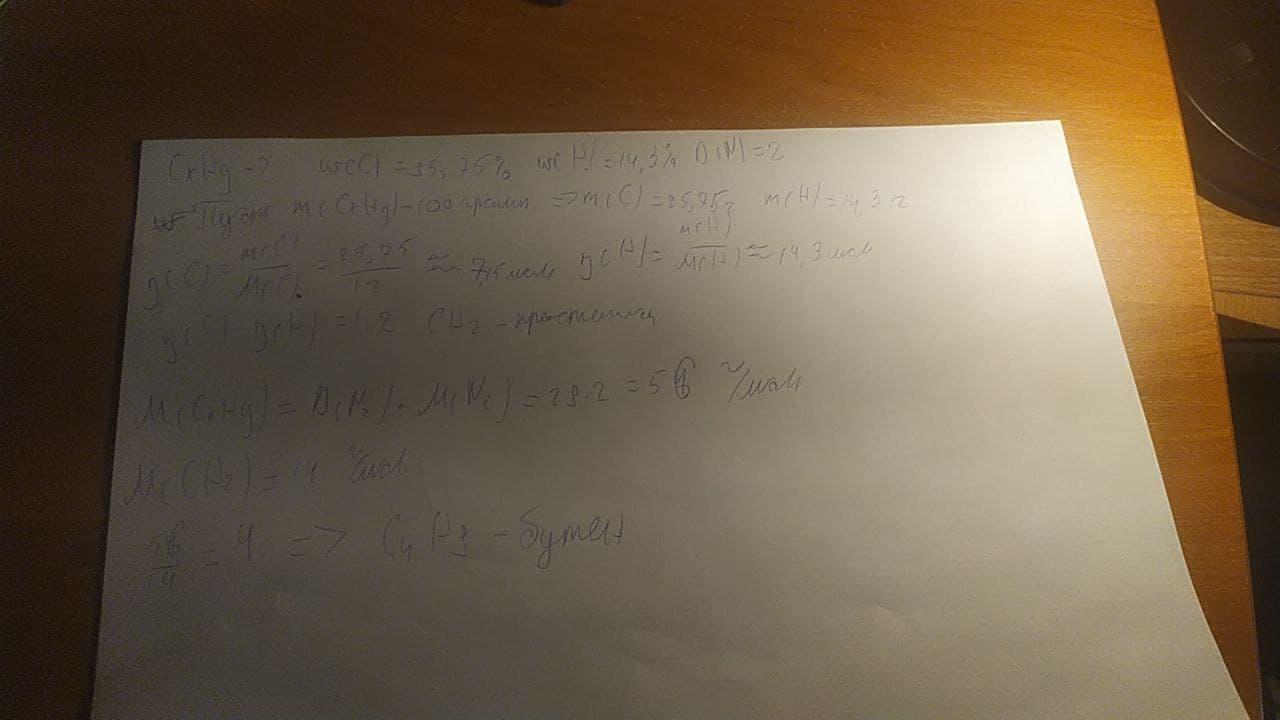 CxHy => w(C) = 85,75% w(H) = 14,3% D(N) = 2
Пусть m(CxHy) - 100 грамм => m(C) = 85,75г m(H) = 14,3 г
γ(C) = m(C)/M(C) = 85,75/12 ≈ 7,15 моль γ(H) = m(H)/M(H) ≈ 14,3 моль
γ(C) γ(H) = 1,2 CH2 - простейш
M(CxHy) = D(N2) · M(N2) = 28·2 = 56 г/моль
M(CH2) = 14 г/моль
56/14 = 4 => C4H8 - бутен